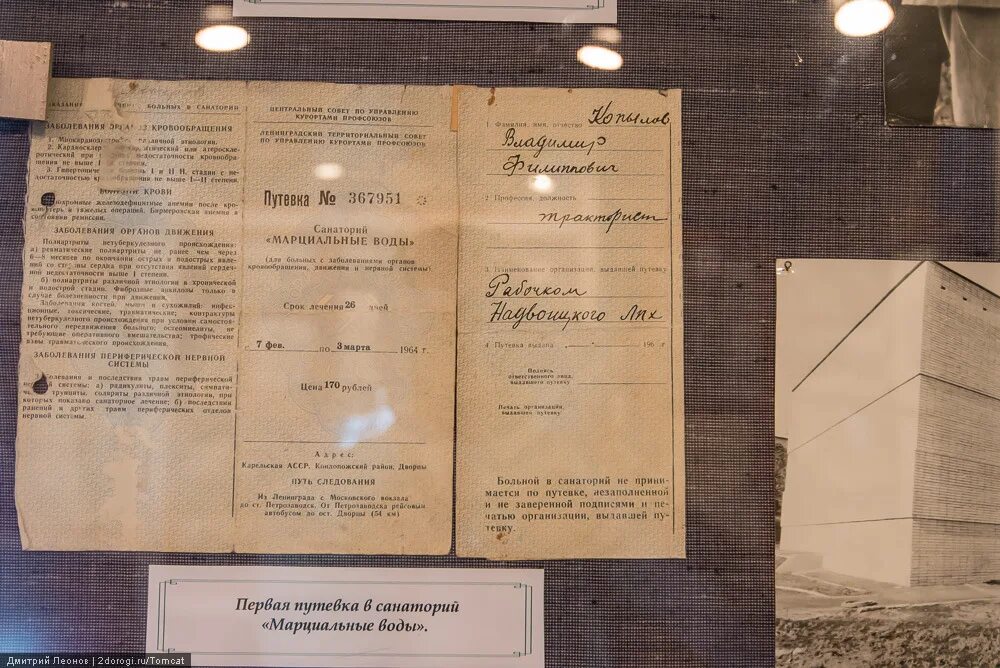 БОЛЬНЫХ В САНАТОРИИ
ЗАБОЛЕВАНИЯ КРОВООБРАЩЕНИЯ
1. различной этиологии.
2. и атероскле-
ротической при недостаточности кровообра-
щения не выше I
3. I и II Н. стадии с не-
достаточностью не выше I—II степени.
КРОВИ
железодефицитные анемии после кро-
и тяжелых операций. Бирмеровская анемия в
состоянии ремиссии.
ЗАБОЛЕВАНИЯ ОРГАНОВ ДВИЖЕНИЯ
Полиартриты нетуберкулезного происхождения:
а) ревматические полиартриты не ранее чем через
6—8 месяцев по окончании острых и подострых явле-
ний со стороны сердца при отсутствии явлений сердеч-
ной недостаточности выше I степени.
б) полиартриты различной этиологии в хронической
и подострой стадии. Фиброзные анкилозы только в
случае болезненности при движении.
Заболевания костей, мышц и сухожилий: инфек-
ционные, токсические, травматические; контрактуры
нетуберкулезного происхождения при условии самостоя-
тельного передвижения больного, остеомиелиты, не
требующие оперативного вмешательства; трофические
язвы травматического происхождения.
ЗАБОЛЕВАНИЯ ПЕРИФЕРИЧЕСКОЙ НЕРВНОЙ
СИСТЕМЫ
Заболевания и последствия травм периферической
системы: а) радикулиты, плекситы,
трунциты, соляриты различной этиологии, при
которых показано санаторное лечение; б) последствия
ранений и других травм периферических отделов
нервной системы.
ЦЕНТРАЛЬНЫЙ СОВЕТ ПО УПРАВЛЕНИЮ
КУРОРТАМИ ПРОФСОЮЗОВ
ЛЕНИНГРАДСКИЙ ТЕРРИТОРИАЛЬНЫЙ СОВЕТ
ПО УПРАВЛЕНИЮ КУРОРТАМИ ПРОФСОЮЗОВ
Путевка № 367951
Санаторий
«МАРЦИАЛЬНЫЕ ВОДЫ»
(для больных с заболеваниями органов
кровообращения, движения и нервной системы)
Срок лечения 26 дней
с 7 фев. по 3 марта 1964 г.
Цена 170 рублей
Адрес:
Карельская АССР, Кондопожский район, Дворцы
ПУТЬ СЛЕДОВАНИЯ
Из Ленинграда с Московского вокзала
до ст. Петрозаводск. От Петрозаводска рейсовым
автобусом до ост. Дворцы (54 км)
1. Фамилия, имя, отчество Копылов
Владимир
Филиппович
2. Профессия, должность
тракторист
3. Наименование организации, выдавшей путевку
Рабочком
Надвоицкого Лпх
4. Путевка выдана 196 г.
Подпись
ответственного лица,
выдавшего путевку
Печать организации,
выдавшей путевку
Больной в санаторий не прини-
мается по путевке, незаполненной
и не заверенной подписями и пе-
чатью организации, выдавшей пу-
тевку.
Первая путевка в санаторий
«Марциальные воды».
Дмитрий Леонов | 2dorogi.ru/Tomcat